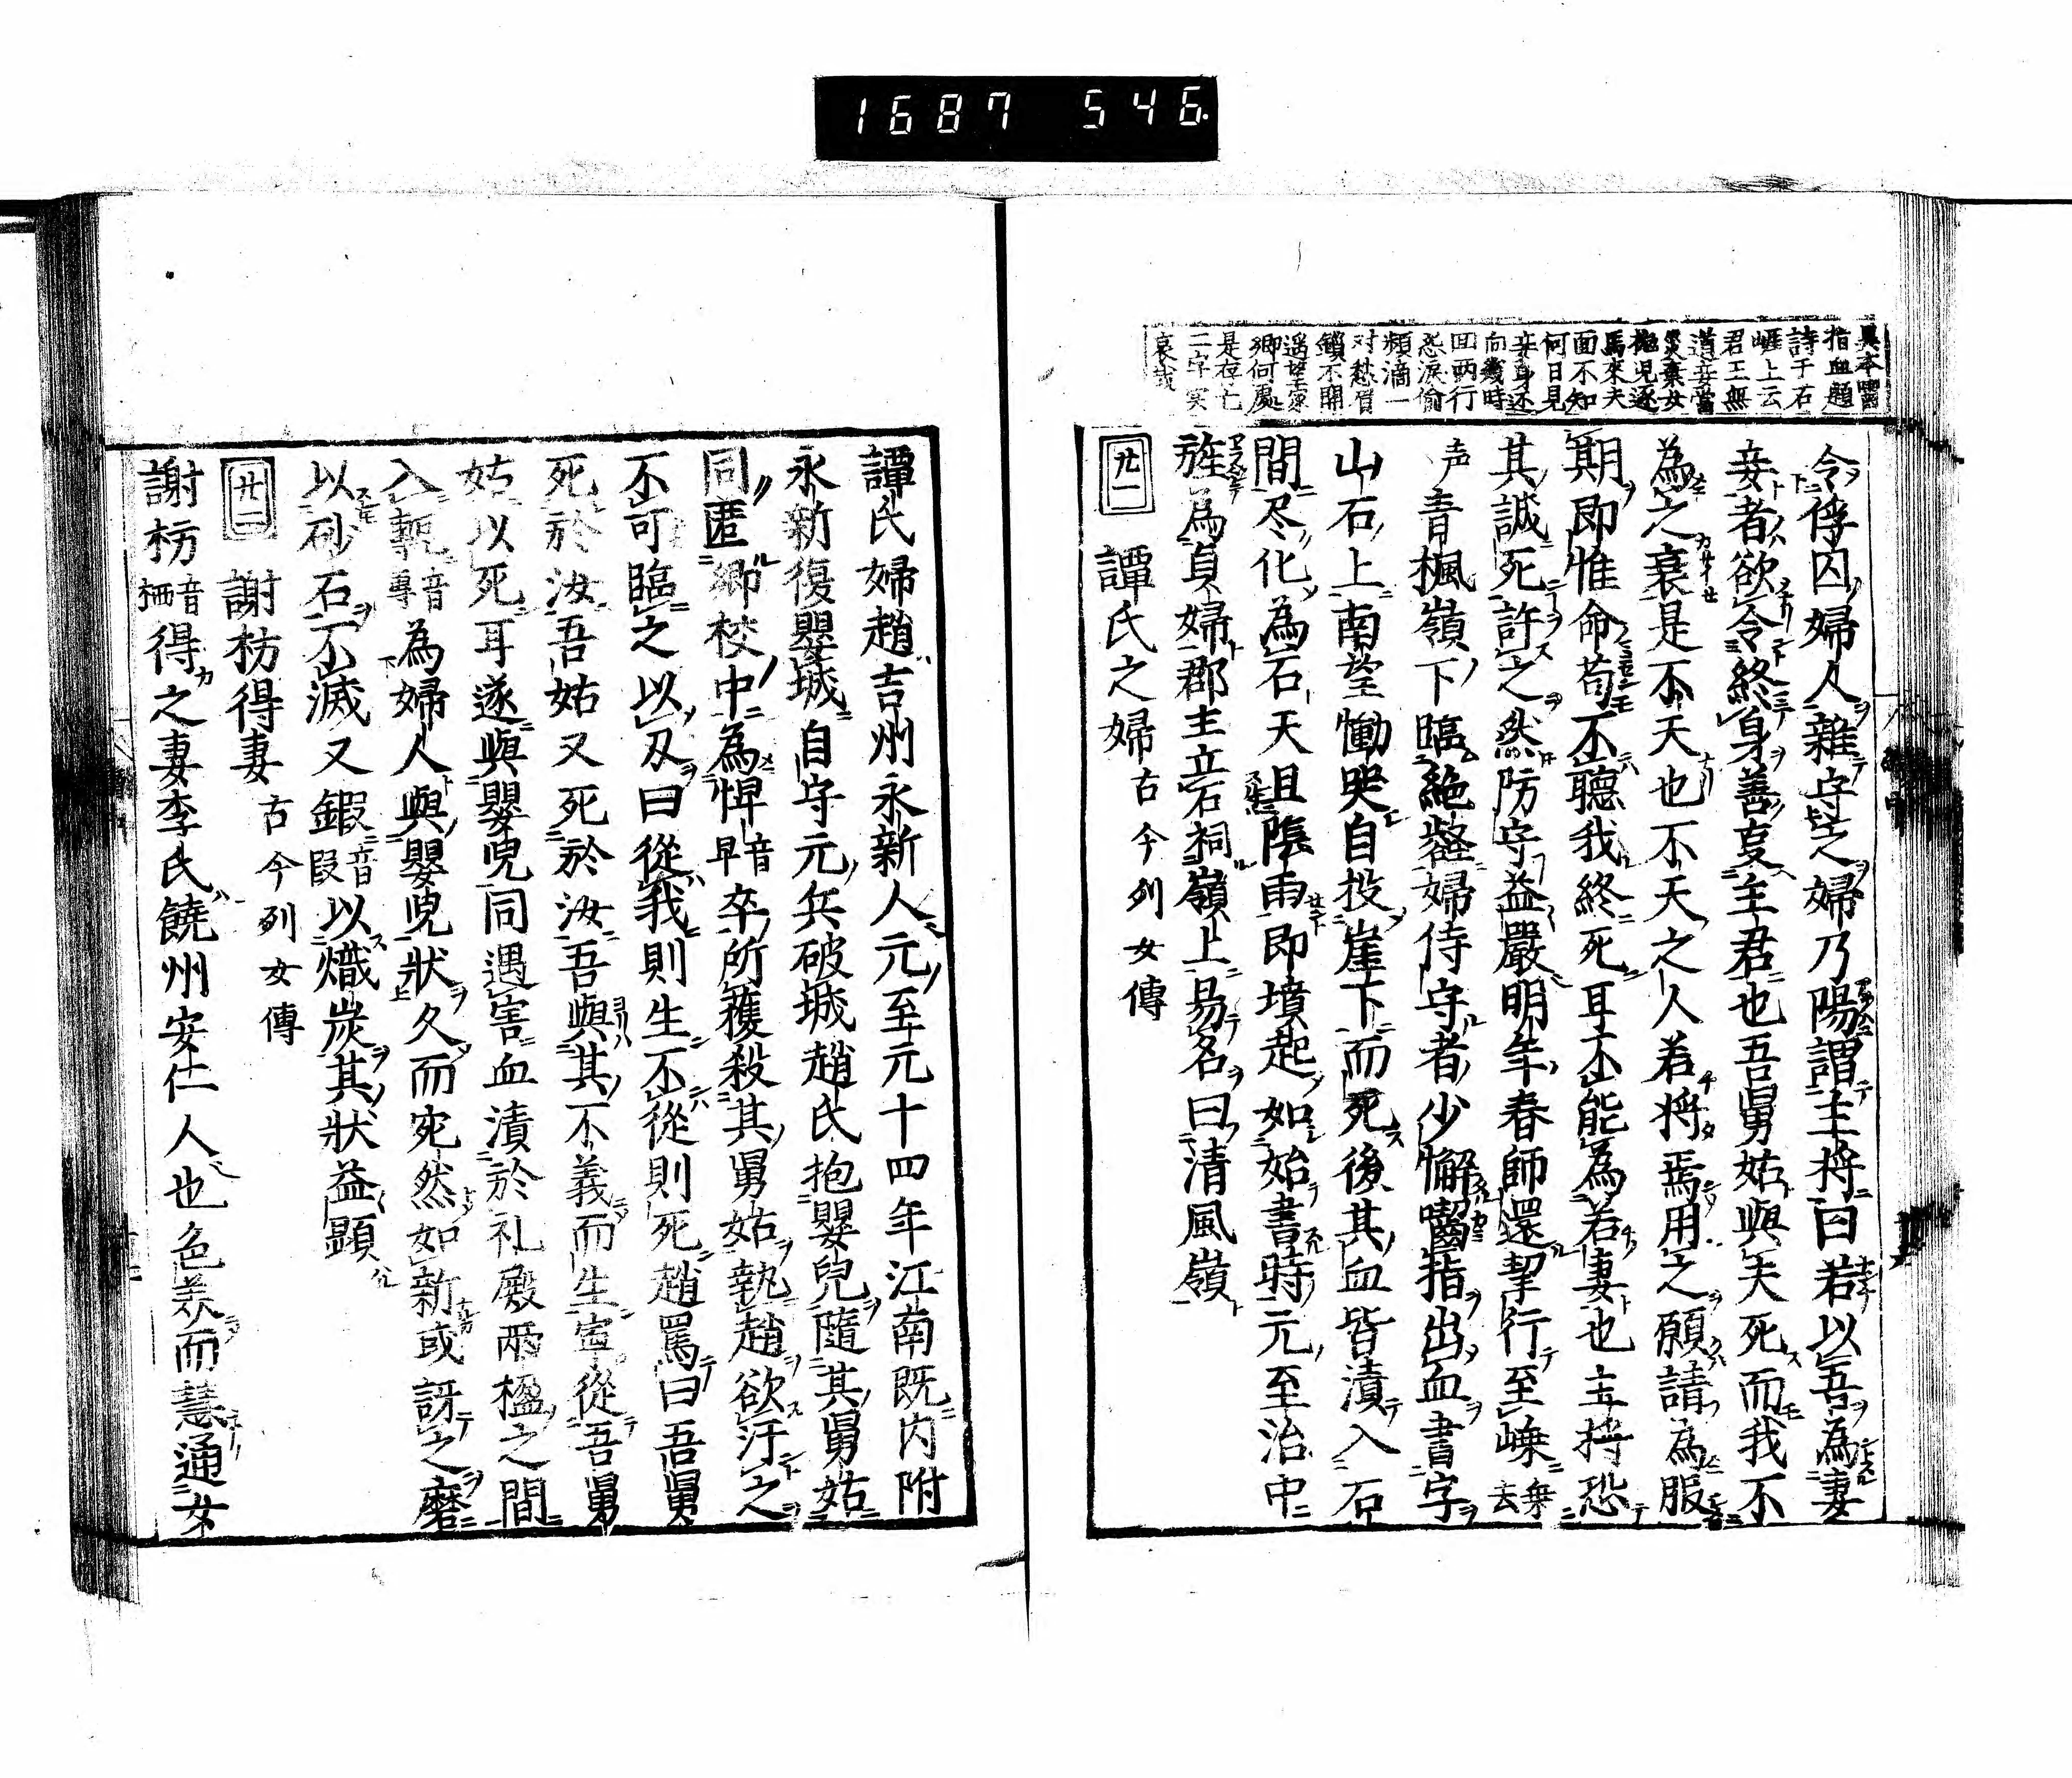 1687 546
異本嚙
指血題
詩于石
崕上云
君王無
道妾當
災棄女
抛兒逐
馬來夫
面不知
何日見
妾身还
向幾時
回両行
怨涙偷
頻滴一
对愁眉
鎖不開
遥望家
郷何處
是存亡
二字実
哀哉
令俘囚婦人雜守之婦乃陽謂主将曰若以吾為妻
妾者欲令終身善事主君也吾舅姑與夫死而我不
為之衰是不天也不天之人若将焉用之願請為服
期即惟命苟不聽我終死耳不能為若妻也主将恐
其誠死許之然防守益嚴明年春師還挈行至嵊乗去
声青楓嶺下臨絶壑婦侍守者少懈嚙指出血書字
山石上南望慟哭自投崖下而死後其血皆漬入石
間尽化為石天且陰雨即墳起如始書時元至治中
旌為貞婦郡主立石祠嶺上易名曰清風嶺
廿一 譚氏之婦 古今列女傳
譚氏婦趙吉州永新人元至元十四年江南既内附
永新復嬰城自守元兵破城趙氏抱嬰兒隨其舅姑
同匿郷校中為悍音早卒所獲殺其舅姑執趙欲汙之
不可臨之以刄曰從我則生不從則死趙罵曰吾舅
死於汝吾姑又死於汝吾與其不義而生寧從吾舅
姑以死耳遂與嬰兒同遇害血漬於礼殿兩楹之間
入甎音専為婦人與嬰兒狀久而宛然如新或訝之磨
以砂石不滅又鍜音叚以熾炭其狀益顕
廿二 謝枋得妻 古今列女傳
謝枋音栖得之妻李氏饒州安仁人也色美而慧通女